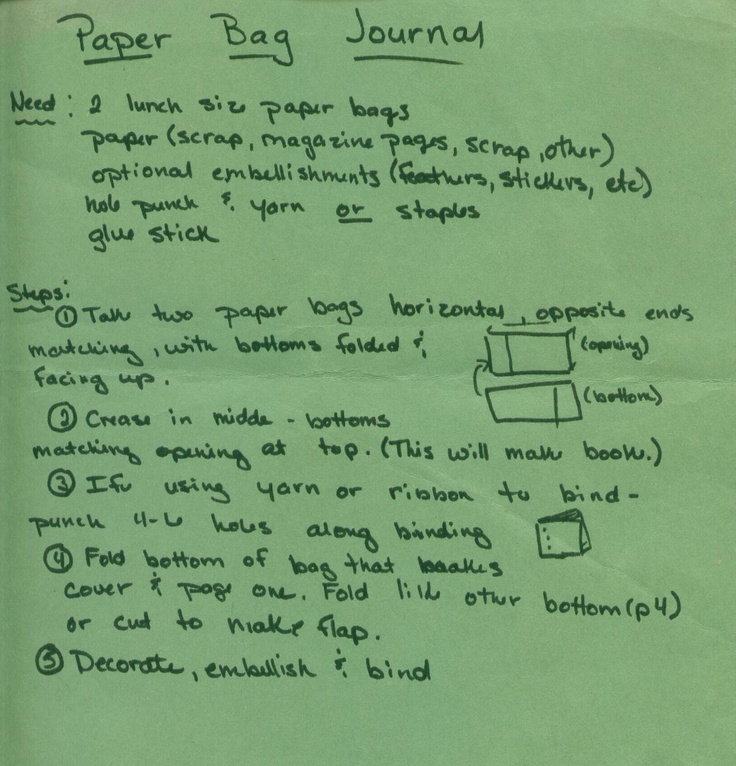 Paper Bag Journal
Need: 2 lunch size paper bags
paper (scrap, magazine pages, scrap, other)
optional embellishments (feathers, stickers, etc)
hole punch & yarn or staples
glue stick
Steps:
① Take two paper bags horizontal, opposite ends
matching, with bottoms folded &
facing up.
(opening)
(bottom)
② Crease in midde - bottoms
matching opening at top. (This will make book.)
③ If using yarn or ribbon to bind -
punch 4-6 holes along binding
④ Fold bottom of bag that makes
cover & page one. Fold like other bottom (p4)
or cut to make flap.
⑤ Decorate, embellish & bind